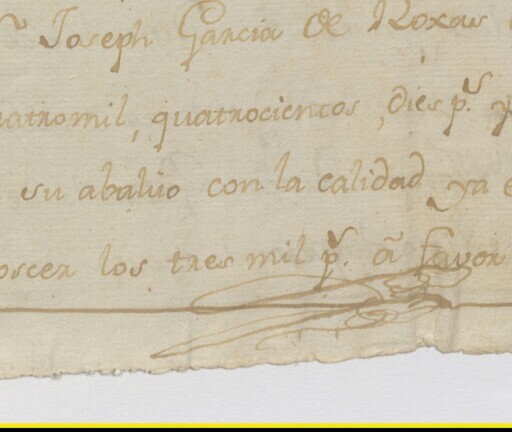 Joseph Garcia de Roxas
quatromil, quatrocientos, dies p.s y
su abaluo con la calidad ya e
oscer los tres mil p.s â favor